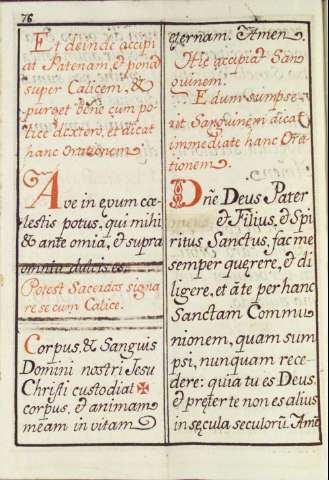 76
Et deinde accipi
at Patenam, et ponat
super Calicem, &
purget bene cum po-
llice dextero, et dicat
hanc Orationem
Ave in ęvum cœ
lestis potus, qui mihi
& ante omia, & supra
omnia dulcis es,
Potest Sacerdos signa
re se cum Calice.
Corpus, & Sanguis
Domini nostri Jesu
Christi custodiat ✠
corpus, & animam
meam in vitam
ęternam. Amen
Hic accipiat San
guinem.
Et dum sumpse-
rit Sanguinem dicat
immediate hanc Ora-
tionem
Dñe Deus Pater
& Filius, & Spi
ritus Sanctus, fac me
semper quęrere, & di
ligere, et à te per hanc
Sanctam Commu
nionem, quam sum
psi, nunquam rece
dere: quia tu es Deus,
& pręter te non es alius
in sęcula seculorũ. Amẽ